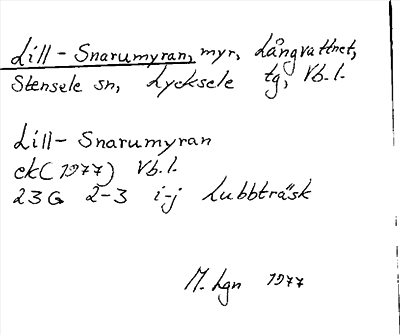 Lill-Snarumyran, myr, Långvattnet,
Stensele sn, Lycksele tg, Vb.l.
Lill-Snarumyran
ek (1977) Vb.l.
23G 2-3 i-j Lubbträsk
M. Lgn 1977